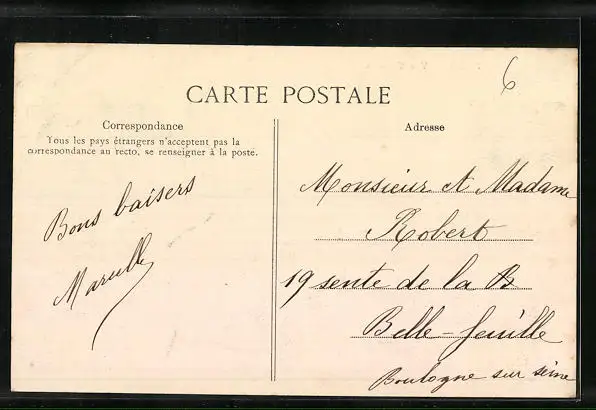 CARTE POSTALE
6
Correspondance
Tous les pays étrangers n'acceptent pas la
correspondance au recto, se renseigner à la poste.
Bons baisers
Adresse
Monsieur et Madame
Robert
19 sente de la B
Belle-feuille
Boulogne sur seine